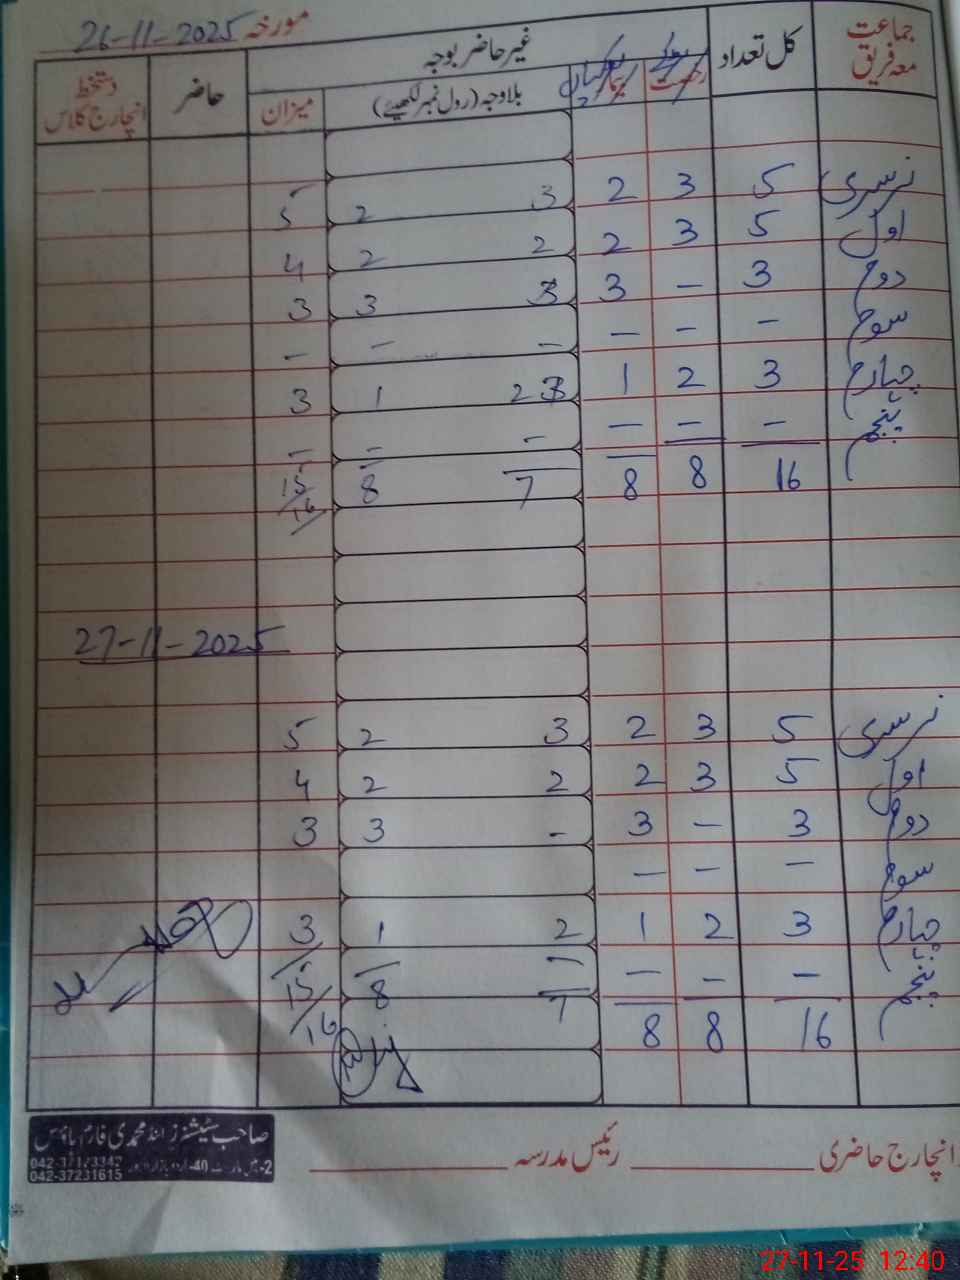 مورخہ 26-11-2025
جماعت معہ فریق کل تعداد غیر حاضر بوجہ حاضر دستخط انچارج کلاس
رخصت بیمار بلاوجہ (رول نمبر لکھیے) میزان
نرسری 5 3 2 3 2 5
اول 5 3 2 2 2 4
دوم 3 - 3 3 3
سوم - - - - - -
چہارم 3 2 1 2 1 3
پنجم - - - - - -
16 8 8 7 8 15/16
27-11-2025
نرسری 5 3 2 3 2 5
اول 5 3 2 2 2 4
دوم 3 - 3 - 3 3
سوم - - -
چہارم 3 2 1 2 1 3
پنجم - - -
16 8 8 7 8 15/16
انچارج حاضری رئیس مدرسہ
صاحب سٹیشنرز اینڈ محمدی فارم ہاؤس
042-37231615
27-11-25 12:40